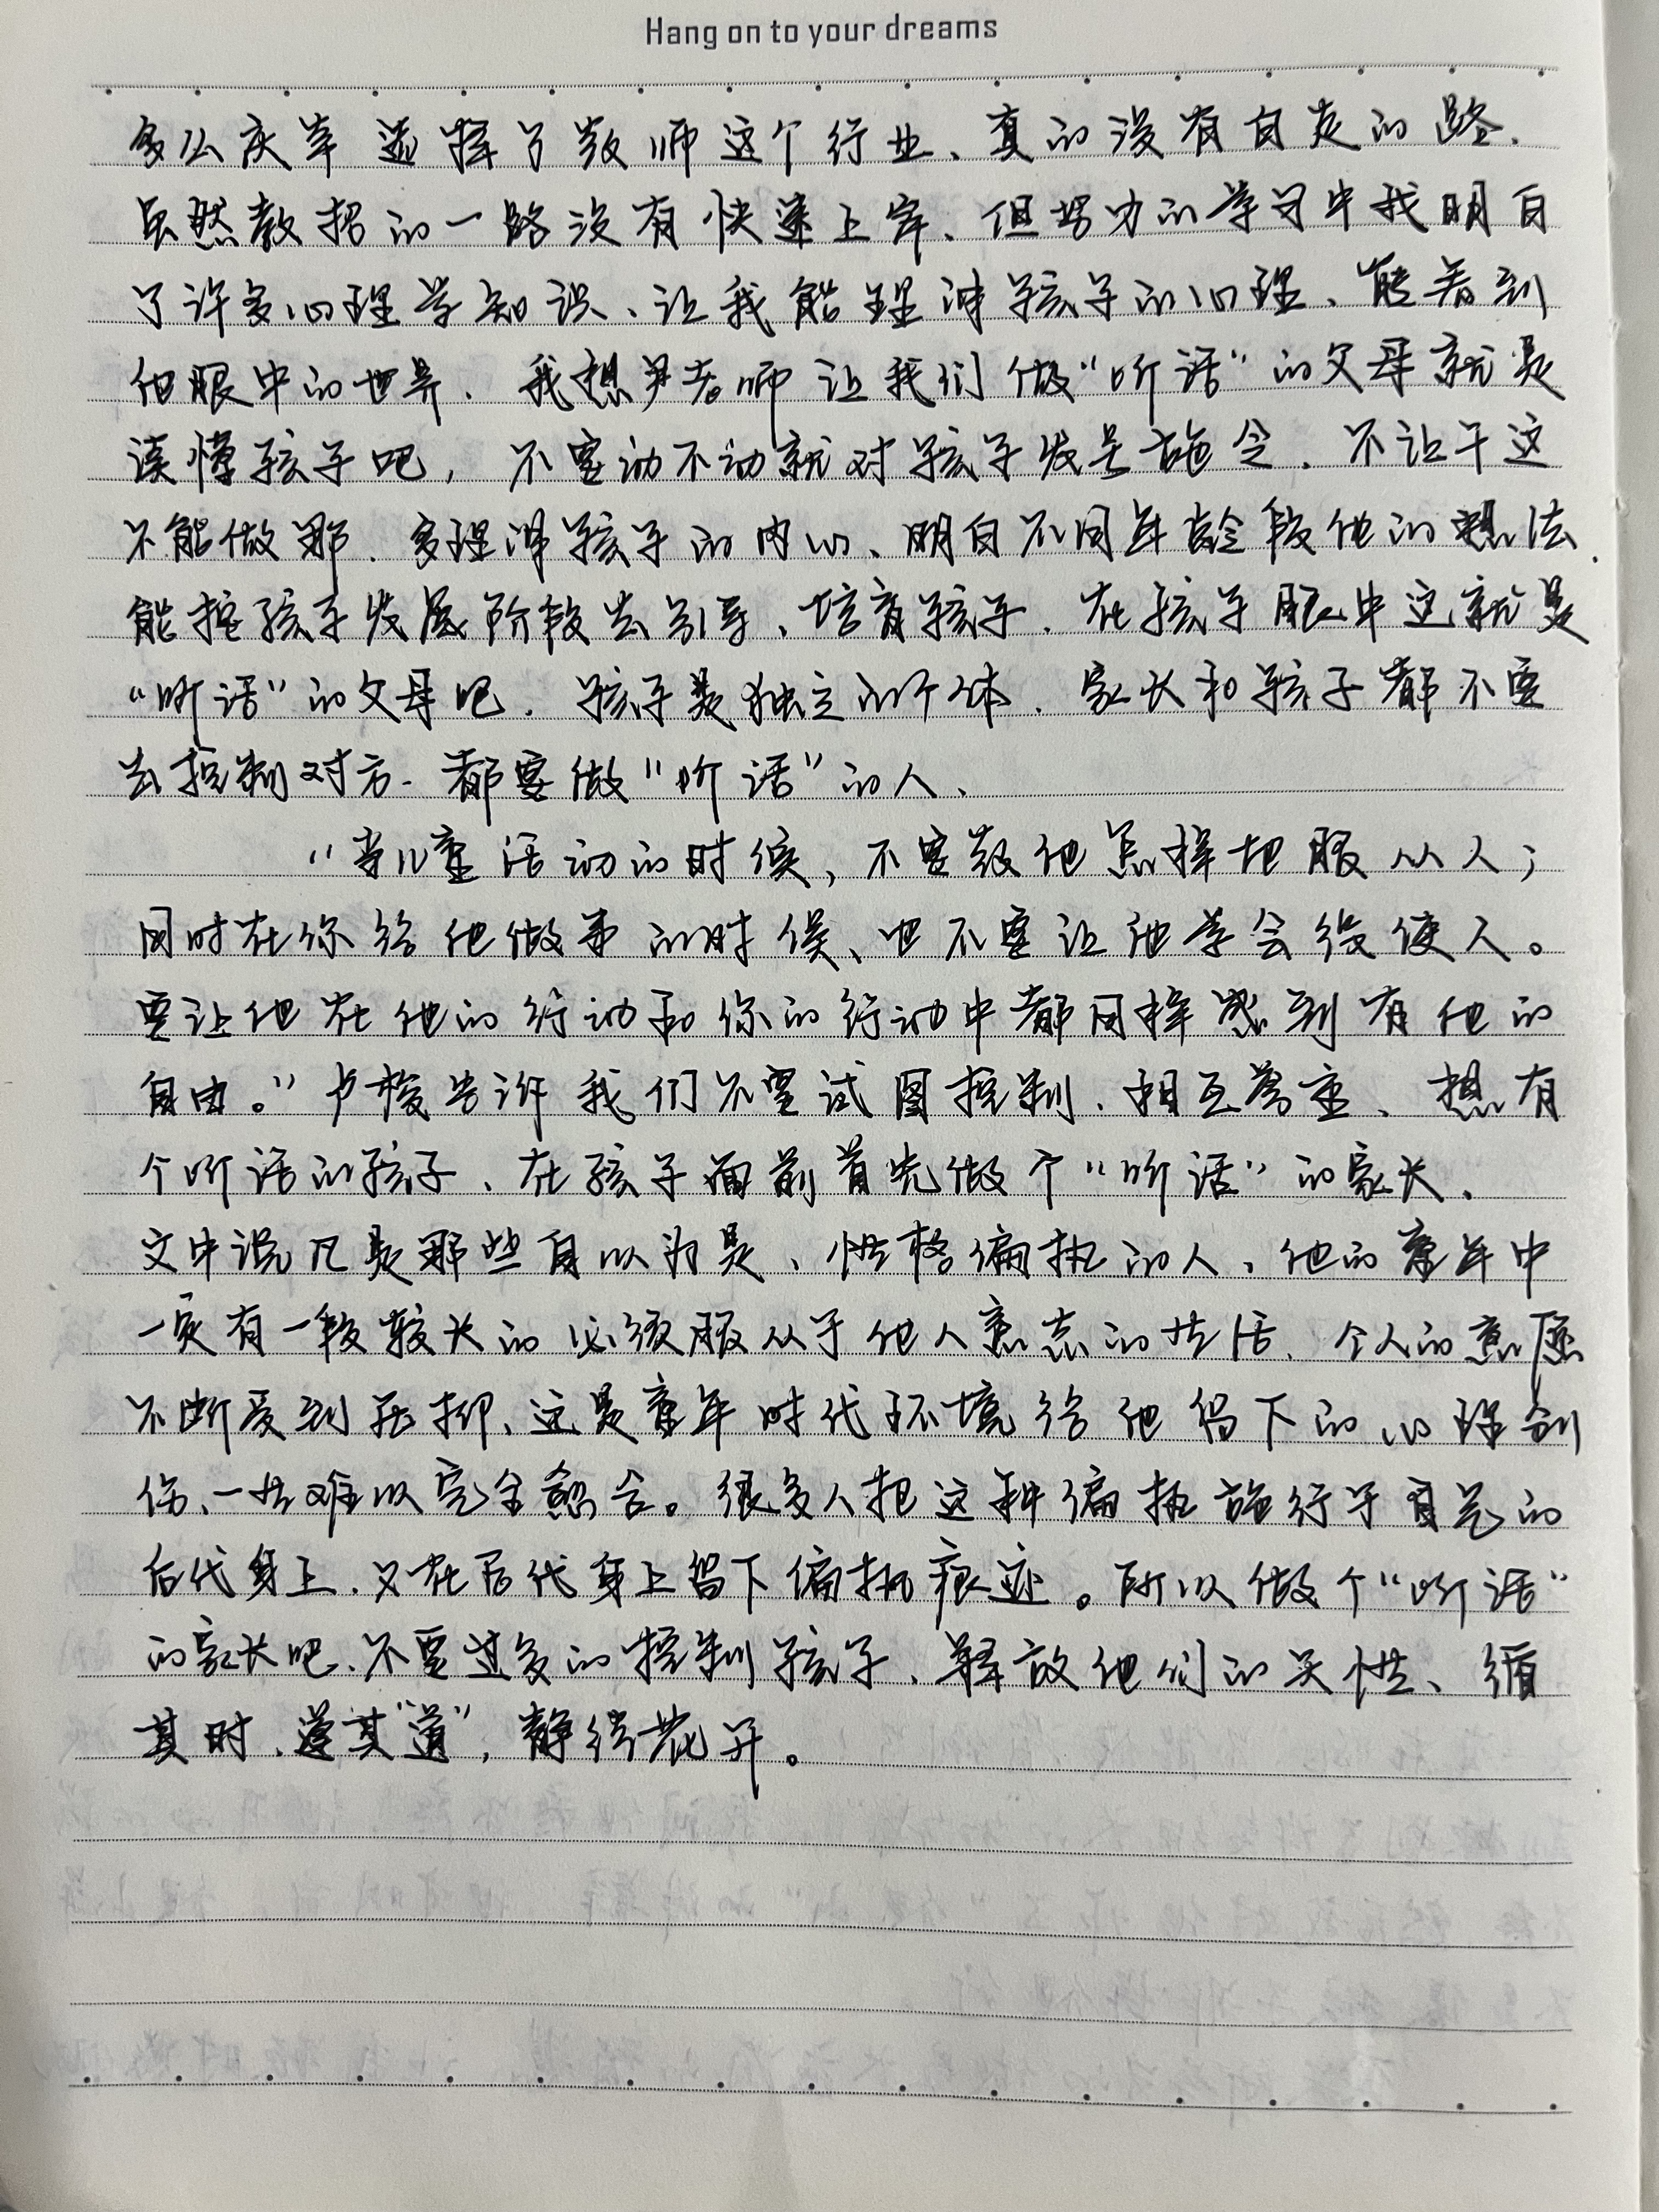 Hang on to your dreams
多么庆幸选择了教师这个行业、真的没有白走的路.
虽然教招的一路没有快速上岸、但努力的学习中我明白
了许多心理学知识、让我能理解孩子的心理、能看到
他眼中的世界. 我想尹老师让我们做“听话”的父母就是
读懂孩子吧, 不要动不动就对孩子发号施令. 不让干这
不能做那. 多理解孩子的内心、明白不同年龄段他的想法.
能按孩子发展阶段去引导、培育孩子. 在孩子眼中这就是
“听话”的父母吧. 孩子是独立的个体. 家长和孩子都不要
去控制对方. 都要做“听话”的人、
“当儿童活动的时候, 不要教他怎样地服从人;
同时在你给他做事的时候、也不要让他学会役使人。
要让他在他的行动和你的行动中都同样感到有他的
自由。”卢梭告诉我们不要试图控制、相互尊重、想有
个听话的孩子、在孩子面前首先做个“听话”的家长、
文中说凡是那些自以为是、性格偏执的人、他的童年中
一定有一段较长的必须服从于他人意志的生活、个人的意愿
不断受到压抑、这是童年时代环境给他留下的心理创
伤、一生难以完全愈合。很多人把这种偏执施行于自己的
后代身上、又在后代身上留下偏执痕迹。所以做个“听话”
的家长吧、不要过多的控制孩子、释放他们的天性、循
其时、遵其“道”, 静待花开。